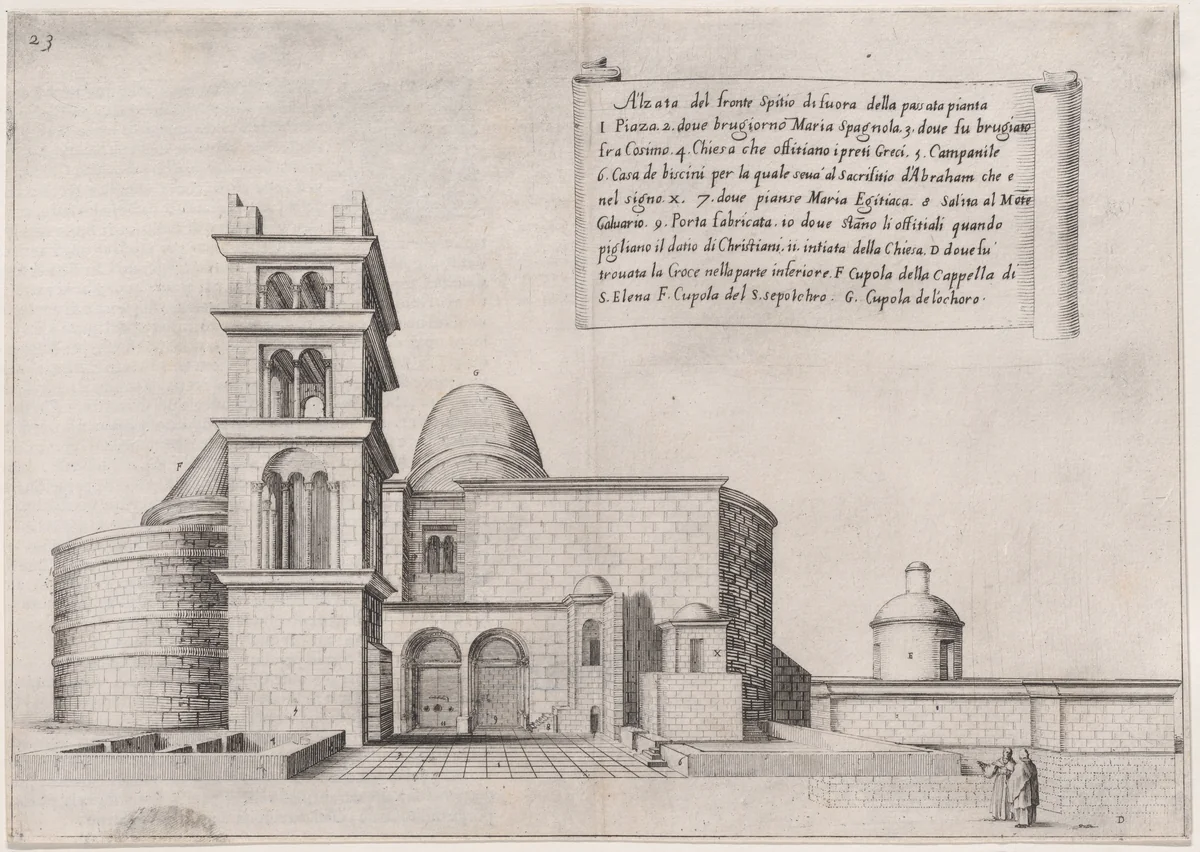 23
Alzata del fronte Spitio di fuora della passata pianta
1 Piaza. 2. doue brugiorno Maria Spagnola. 3. doue fu brugiato
fra Cosimo. 4. Chiesa che offitiano i preti Greci. 5. Campanile
6. Casa de biscini per la quale seua' al Sacrifitio d'Abraham che e
nel signo. x. 7. doue pianse Maria Egitiaca. 8 Salita al Mōte
Caluario. 9. Porta fabricata. 10 doue stāno li offitiali quando
pigliano il datio di Christiani. 11. intiata della Chiesa. D doue fu'
trouata la Croce nella parte inferiore. F Cupola della Cappella di
S. Elena F. Cupola del S. sepolchro. G. Cupola de lóchoro.
G
F
X
E
D